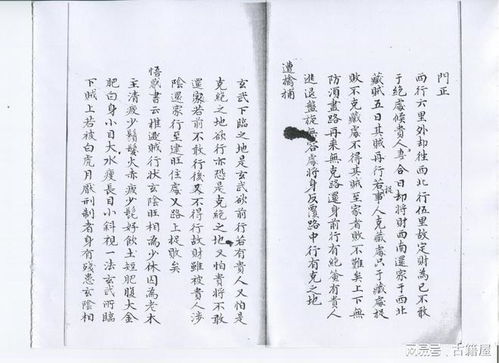 門正
西行六里外却往西北行伍里故定財為已不敢
于絕處候貴人專合日却將財西南還家于西北
藏賊五日其賊再行若事人克藏處只于藏處捉
敗不克藏處不得其賊至家者敗不難矣上下無
防須盡路再來無克路還身前行有絕處有貴人
進退盤旋無容處將身反覆路中行有克之地
遭擒捕
玄武下臨之地是玄武欲前行若有貴人又怕是
克絕之地欲行亦恐是克絕之地又怕貴將不敢
還家若前不敢行後又不得行故財雖被貴人涉
陰還家行至建旺住處又路上捉敗矣
悟惑書云推過賊行狀玄陰旺相為少休囚為老木
主清瘦少鬚髮火赤瘦少髭好飲土短肥腹大金
肥白身小目大水瘦長目小斜視一法玄武所臨
下賊上若被白虎月厭刑制者身有殘患玄陰相
搜狐号@古籍屋